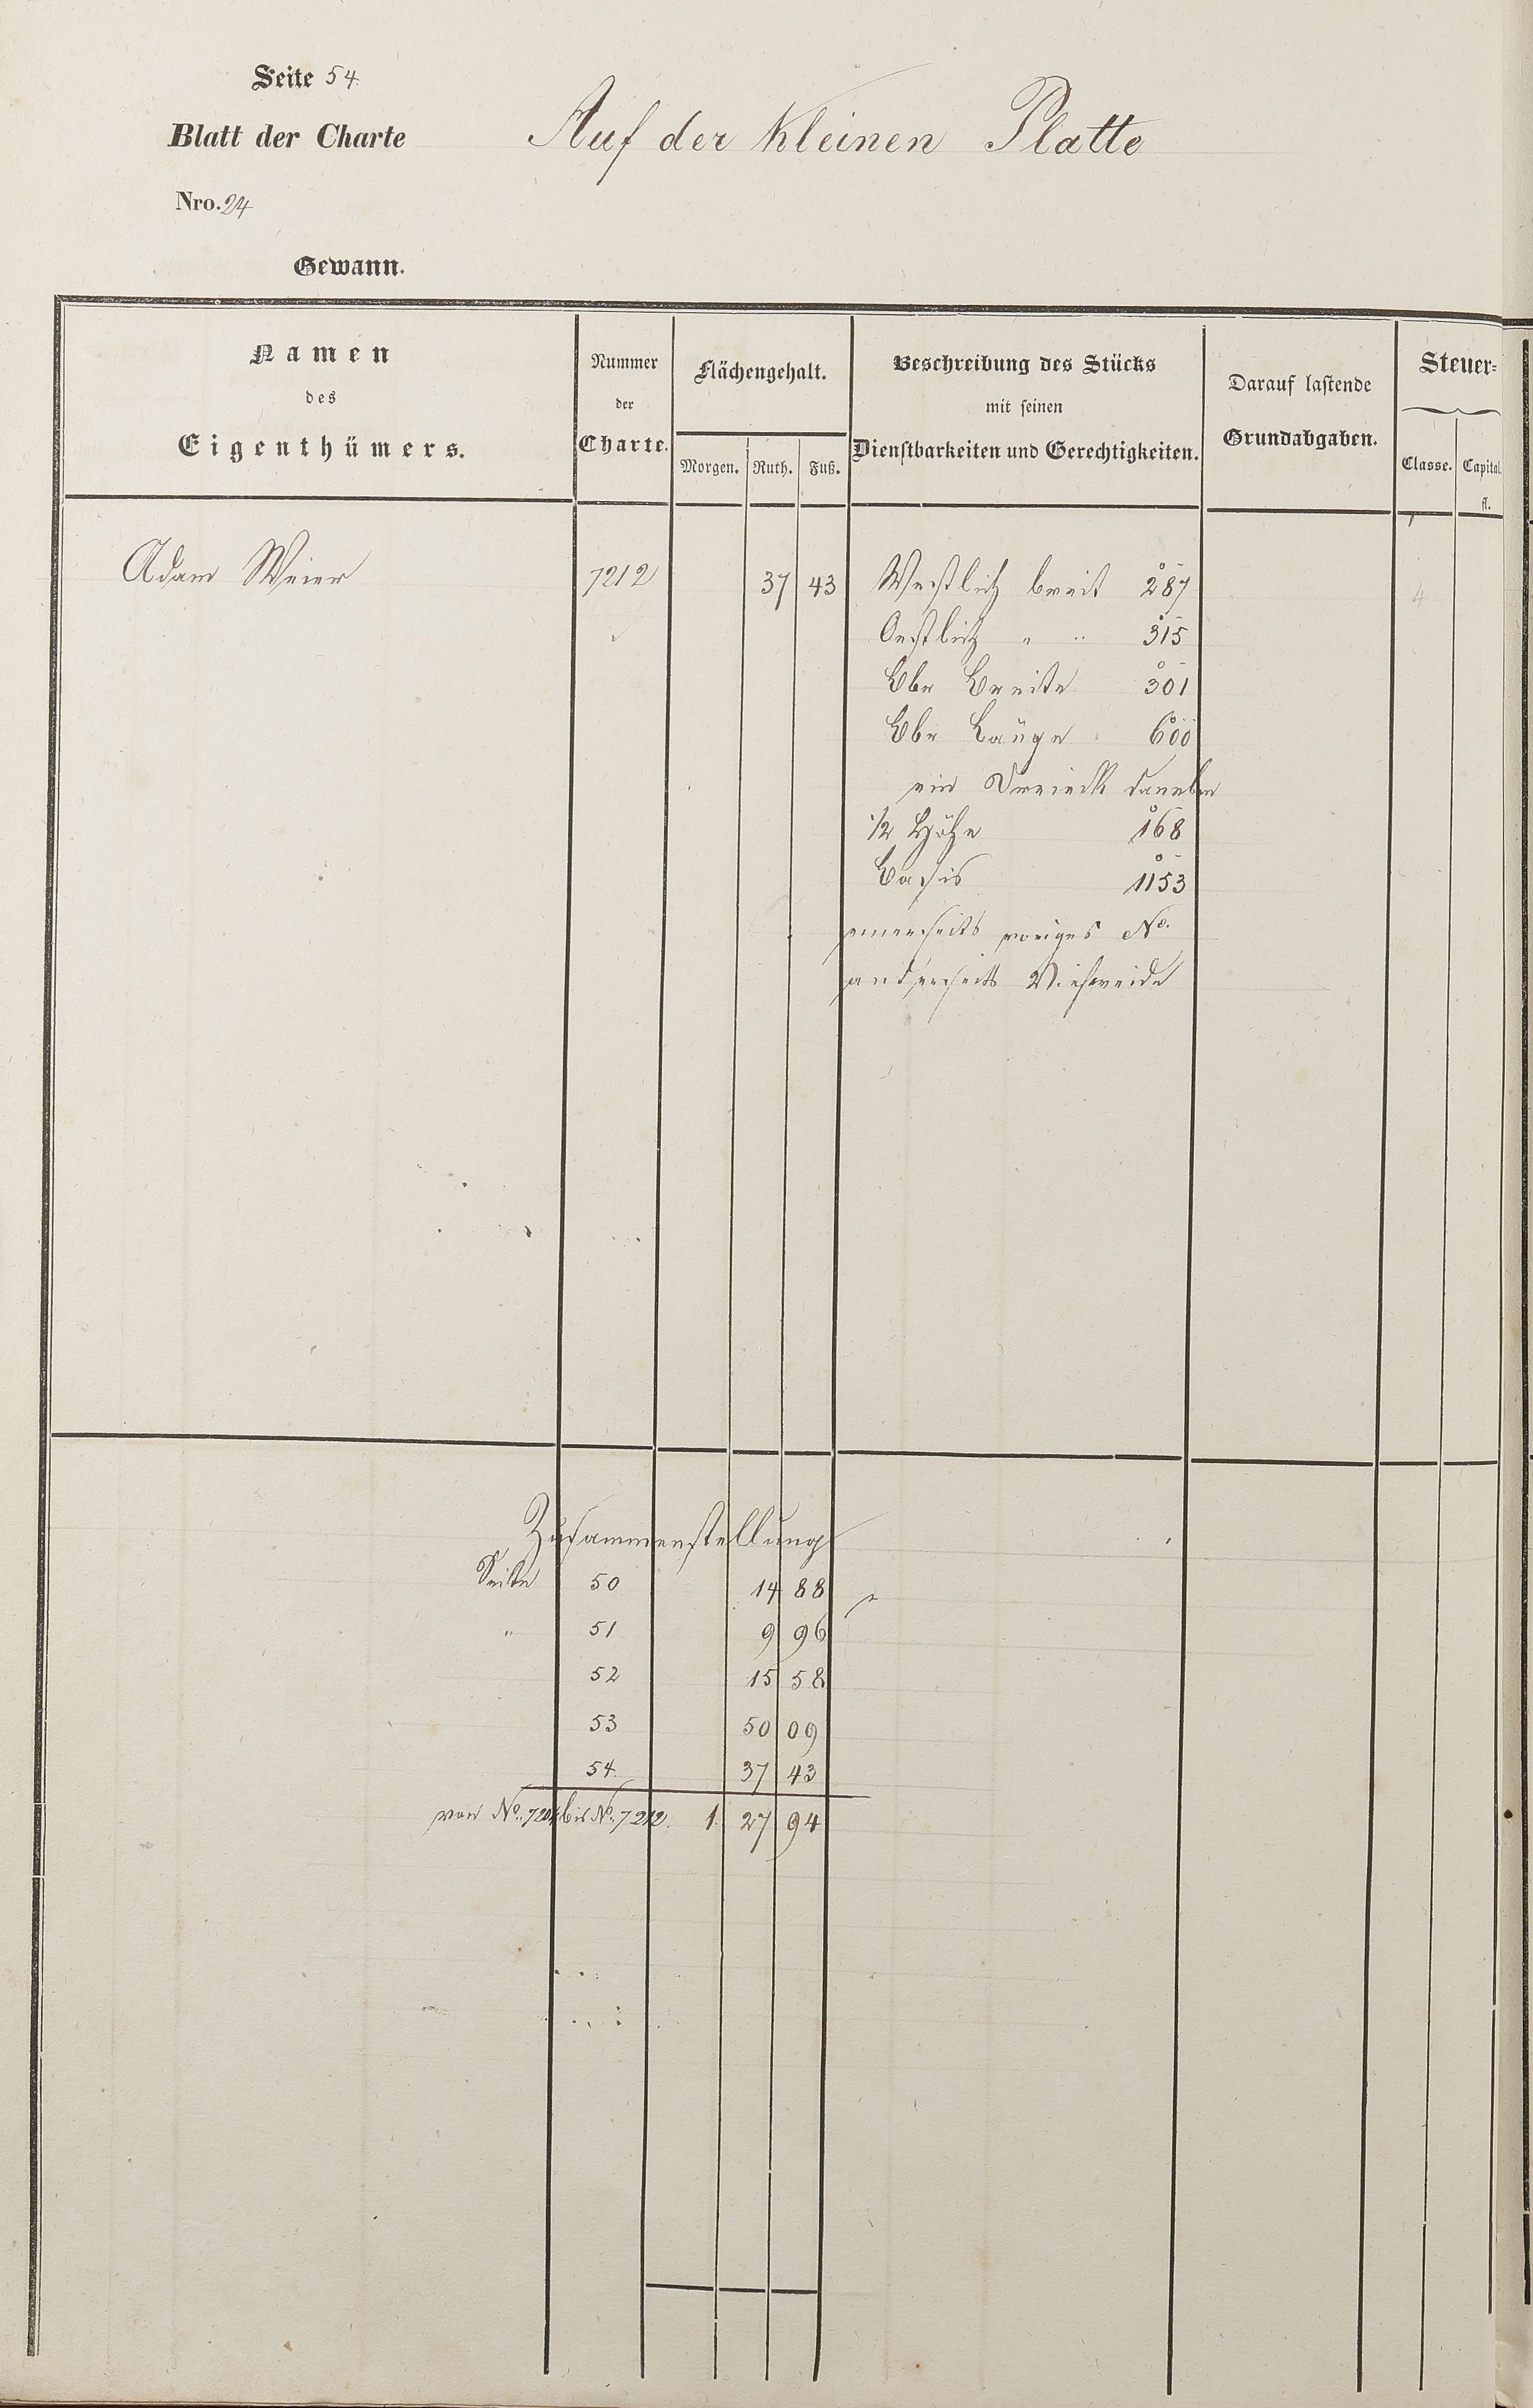 Seite 54.
Blatt der Charte
Auf der Kleinen Platte
Nro. 24
Gewann.
Namen des Eigenthümers.
Nummer der Charte.
Flächengehalt.
Morgen. Ruth. Fuß.
Beschreibung des Stücks mit seinen Dienstbarkeiten und Gerechtigkeiten.
Darauf lastende Grundabgaben.
Steuer=
Classe. Capital fl.
Adam Weier 7212 37 43 Westlich breit 287 4
Oestlich " " 315
Ebe Breite 301
Ebe Länge 600
ein Dreieck daneben
1/2 Höhe 168
Basis 1153
einerseits voriges No.
anderseits Viehweide
Zusammenstellung
Seite 50 14 88
" 51 9 96
52 15 58
53 50 09
54. 37 43
von No. 7204 bis No. 7212. 1. 27 94